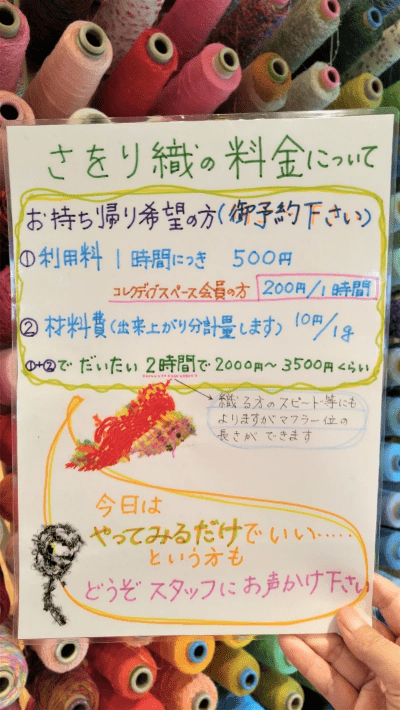 さをり織の料金について
お持ち帰り希望の方(御予約下さい)
①利用料 1時間につき 500円
コレクティブスペース会員の方 200円/1時間
②材料費(出来上がり分計量します) 10円/1g
①+②で だいたい 2時間で2000円〜3500円くらい
織る方のスピード等にも
よりますがマフラー位の
長さができます
今日は
やってみるだけでいい……
という方も
どうぞスタッフにお声かけ下さい